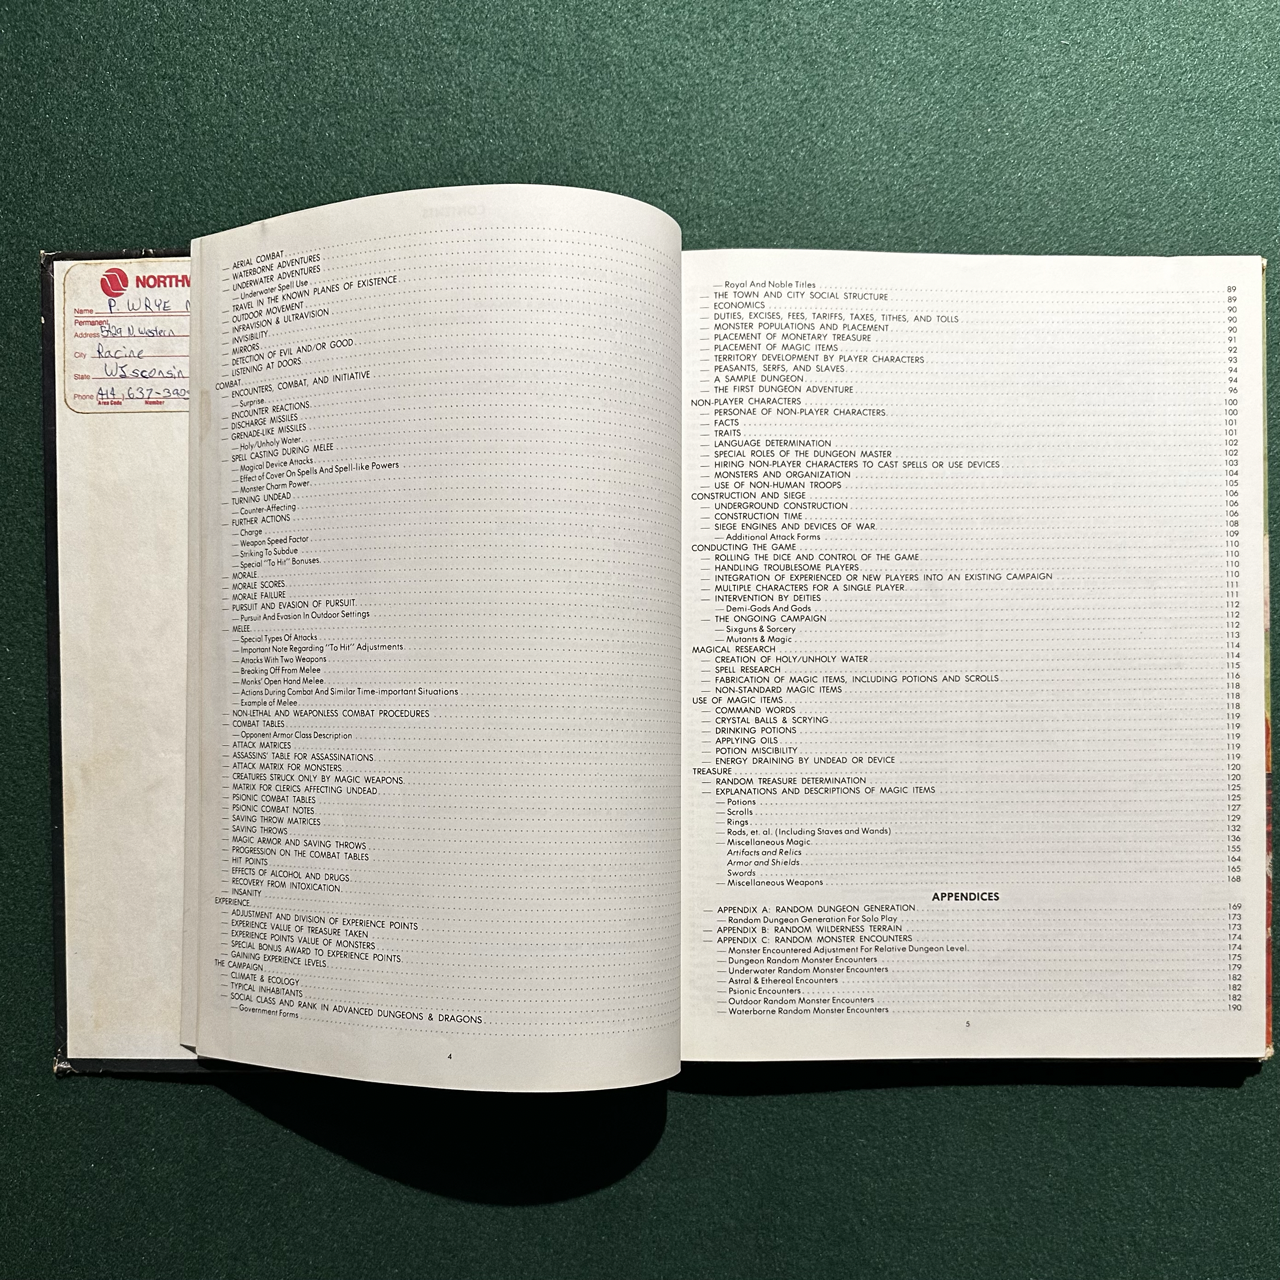 NORTHW
Name P. WRYE
Permanent
Address 5429 N. Western
City Racine
State Wisconsin
Phone 414, 637-
Area Code Number
— AERIAL COMBAT
— WATERBORNE ADVENTURES
— UNDERWATER ADVENTURES
— Underwater Spell Use
— TRAVEL IN THE KNOWN PLANES OF EXISTENCE
— OUTDOOR MOVEMENT
— INFRAVISION & ULTRAVISION
— INVISIBILITY
— MIRRORS
— DETECTION OF EVIL AND/OR GOOD
— LISTENING AT DOORS
COMBAT
— ENCOUNTERS, COMBAT, AND INITIATIVE
— Surprise
— ENCOUNTER REACTIONS
— DISCHARGE MISSILES
— GRENADE-LIKE MISSILES
— Holy/Unholy Water
— SPELL CASTING DURING MELEE
— Magical Device Attacks
— Effect of Cover On Spells And Spell-like Powers
— Monster Charm Power
— TURNING UNDEAD
— Counter-Affecting
— FURTHER ACTIONS
— Charge
— Weapon Speed Factor
— Striking To Subdue
— Special "To Hit" Bonuses
— MORALE
— MORALE SCORES
— MORALE FAILURE
— PURSUIT AND EVASION OF PURSUIT
— Pursuit And Evasion In Outdoor Settings
— MELEE
— Special Types Of Attacks
— Important Note Regarding "To Hit" Adjustments
— Attacks With Two Weapons
— Breaking Off From Melee
— Monks' Open Hand Melee
— Actions During Combat And Similar Time-important Situations
— Example of Melee
— NON-LETHAL AND WEAPONLESS COMBAT PROCEDURES
— COMBAT TABLES
— Opponent Armor Class Description
— ATTACK MATRICES
— ASSASSINS' TABLE FOR ASSASSINATIONS
— ATTACK MATRIX FOR MONSTERS
— CREATURES STRUCK ONLY BY MAGIC WEAPONS
— MATRIX FOR CLERICS AFFECTING UNDEAD
— PSIONIC COMBAT TABLES
— PSIONIC COMBAT NOTES
— SAVING THROW MATRICES
— SAVING THROWS
— MAGIC ARMOR AND SAVING THROWS
— PROGRESSION ON THE COMBAT TABLES
— HIT POINTS
— EFFECTS OF ALCOHOL AND DRUGS
— RECOVERY FROM INTOXICATION
— INSANITY
EXPERIENCE
— ADJUSTMENT AND DIVISION OF EXPERIENCE POINTS
— EXPERIENCE VALUE OF TREASURE TAKEN
— EXPERIENCE POINTS VALUE OF MONSTERS
— SPECIAL BONUS AWARD TO EXPERIENCE POINTS
— GAINING EXPERIENCE LEVELS
THE CAMPAIGN
— CLIMATE & ECOLOGY
— TYPICAL INHABITANTS
— SOCIAL CLASS AND RANK IN ADVANCED DUNGEONS & DRAGONS
— Government Forms
4
— Royal And Noble Titles 89
— THE TOWN AND CITY SOCIAL STRUCTURE 89
— ECONOMICS 90
— DUTIES, EXCISES, FEES, TARIFFS, TAXES, TITHES, AND TOLLS 90
— MONSTER POPULATIONS AND PLACEMENT 90
— PLACEMENT OF MONETARY TREASURE 91
— PLACEMENT OF MAGIC ITEMS 92
— TERRITORY DEVELOPMENT BY PLAYER CHARACTERS 93
— PEASANTS, SERFS, AND SLAVES 94
— A SAMPLE DUNGEON 94
— THE FIRST DUNGEON ADVENTURE 96
NON-PLAYER CHARACTERS 100
— PERSONAE OF NON-PLAYER CHARACTERS 100
— FACTS 101
— TRAITS 101
— LANGUAGE DETERMINATION 102
— SPECIAL ROLES OF THE DUNGEON MASTER 102
— HIRING NON-PLAYER CHARACTERS TO CAST SPELLS OR USE DEVICES 103
— MONSTERS AND ORGANIZATION 104
— USE OF NON-HUMAN TROOPS 105
CONSTRUCTION AND SIEGE 106
— UNDERGROUND CONSTRUCTION 106
— CONSTRUCTION TIME 106
— SIEGE ENGINES AND DEVICES OF WAR 108
— Additional Attack Forms 109
CONDUCTING THE GAME 110
— ROLLING THE DICE AND CONTROL OF THE GAME 110
— HANDLING TROUBLESOME PLAYERS 110
— INTEGRATION OF EXPERIENCED OR NEW PLAYERS INTO AN EXISTING CAMPAIGN 110
— MULTIPLE CHARACTERS FOR A SINGLE PLAYER 111
— INTERVENTION BY DEITIES 111
— Demi-Gods And Gods 112
— THE ONGOING CAMPAIGN 112
— Sixguns & Sorcery 112
— Mutants & Magic 113
MAGICAL RESEARCH 114
— CREATION OF HOLY/UNHOLY WATER 114
— SPELL RESEARCH 115
— FABRICATION OF MAGIC ITEMS, INCLUDING POTIONS AND SCROLLS 116
— NON-STANDARD MAGIC ITEMS 118
USE OF MAGIC ITEMS 118
— COMMAND WORDS 118
— CRYSTAL BALLS & SCRYING 119
— DRINKING POTIONS 119
— APPLYING OILS 119
— POTION MISCIBILITY 119
— ENERGY DRAINING BY UNDEAD OR DEVICE 119
TREASURE 120
— RANDOM TREASURE DETERMINATION 120
— EXPLANATIONS AND DESCRIPTIONS OF MAGIC ITEMS 125
— Potions 125
— Scrolls 127
— Rings 129
— Rods, et. al. (Including Staves and Wands) 132
— Miscellaneous Magic 136
Artifacts and Relics 155
Armor and Shields 164
Swords 165
— Miscellaneous Weapons 168
APPENDICES
— APPENDIX A: RANDOM DUNGEON GENERATION 169
— Random Dungeon Generation For Solo Play 173
— APPENDIX B: RANDOM WILDERNESS TERRAIN 173
— APPENDIX C: RANDOM MONSTER ENCOUNTERS 174
— Monster Encountered Adjustment For Relative Dungeon Level 174
— Dungeon Random Monster Encounters 175
— Underwater Random Monster Encounters 179
— Astral & Ethereal Encounters 182
— Psionic Encounters 182
— Outdoor Random Monster Encounters 182
— Waterborne Random Monster Encounters 190
5